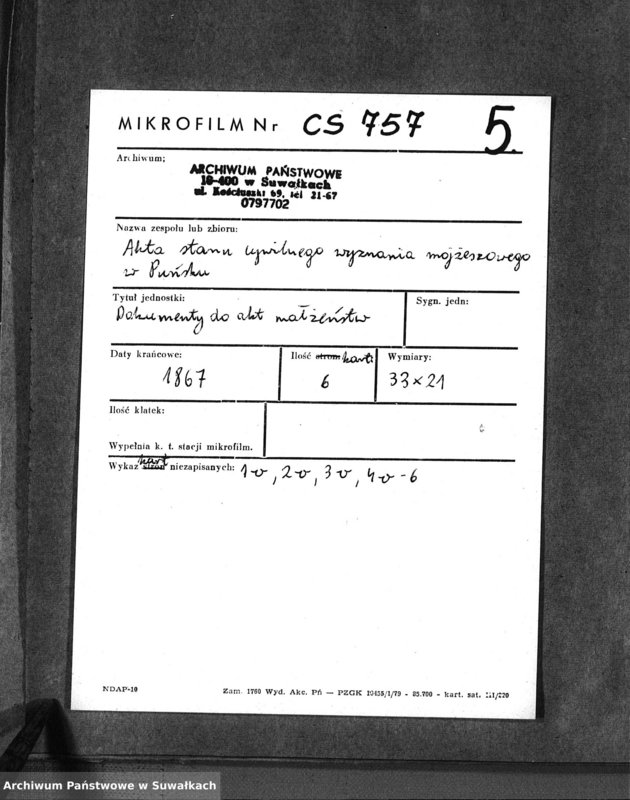 MIKROFILM Nr CS 757 5.
Archiwum;
ARCHIWUM PAŃSTWOWE
16-400 w Suwałkach
ul. Kościuszki 69, tel 21-67
0797702
Nazwa zespołu lub zbioru:
Akta stanu cywilnego wyznania mojżeszowego
w Puńsku
Tytuł jednostki:
Sygn. jedn:
Dokumenty do akt małżeństw
Daty krańcowe:
Ilość stron kart:
Wymiary:
1867
6
33 x 21
Ilość klatek:
Wypełnia k. t. stacji mikrofilm.
Wykaz stron kart niezapisanych: 1v, 2v, 3v, 4v-6
NDAP-10
Zam. 1760 Wyd. Akc. Pń — PZGK 10455/1/79 - 85.700 - kart. sat. III/220
Archiwum Państwowe w Suwałkach